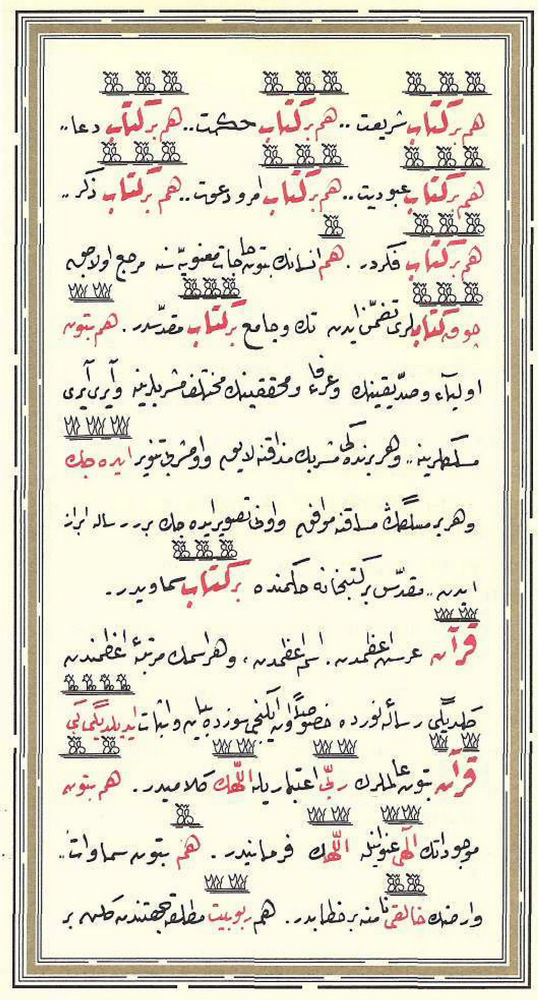 هم بر كتاب شريعت .. هم بر كتاب حكمت .. هم بر كتاب دعا ..
هم بر كتاب عبوديت .. هم بر كتاب امر و دعوت .. هم بر كتاب ذكر ..
هم بر كتاب فكردر . هم انسانك بتون حاجات معنويه‌سنه مرجع اولاجق
چوق كتابلرى تضمّن ايدن تك و جامع بر كتاب مقدّسدر . هم بتون
اولياء و صدّيقينك و عرفاء و محققينك مختلف مشربلرينه و آيرى آيرى
مسلكلرينه .. و هر برنده‌كى مشربك مذاقنه لايق و او مشربى تنوير ايده‌جك
و هر بر مسلكك مساقنه موافق و اونى تصوير ايده‌جك بر رساله ابراز
ايدن .. مقدّس بر كتبخانه حكمنده بر كتاب سماويدر .
قرآن عرش اعظمدن . اسم اعظمدن ، و هر اسمك مرتبۀ اعظمندن
كلديگى رساله نورده خصوصاً اون ايكنجى سوزده بيان و اثبات ايديلديگى كبى
قرآن بتون عالملرك ربّى اعتباريله اللّهك كلاميدر . هم بتون
موجوداتك الٓهى عنوانيله اللّهك فرمانيدر . هم بتون سماوات ..
و ارضك خالقى نامنه بر خطابدر . هم ربوبيت مطلقه جهتنده بر